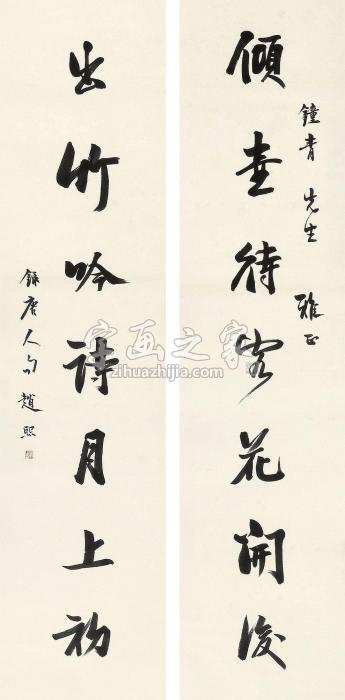 鐘青先生雅正
傾壺待客花開後
出竹吟詩月上初
錄唐人句趙熙
字画之家
zihuazhijia.com